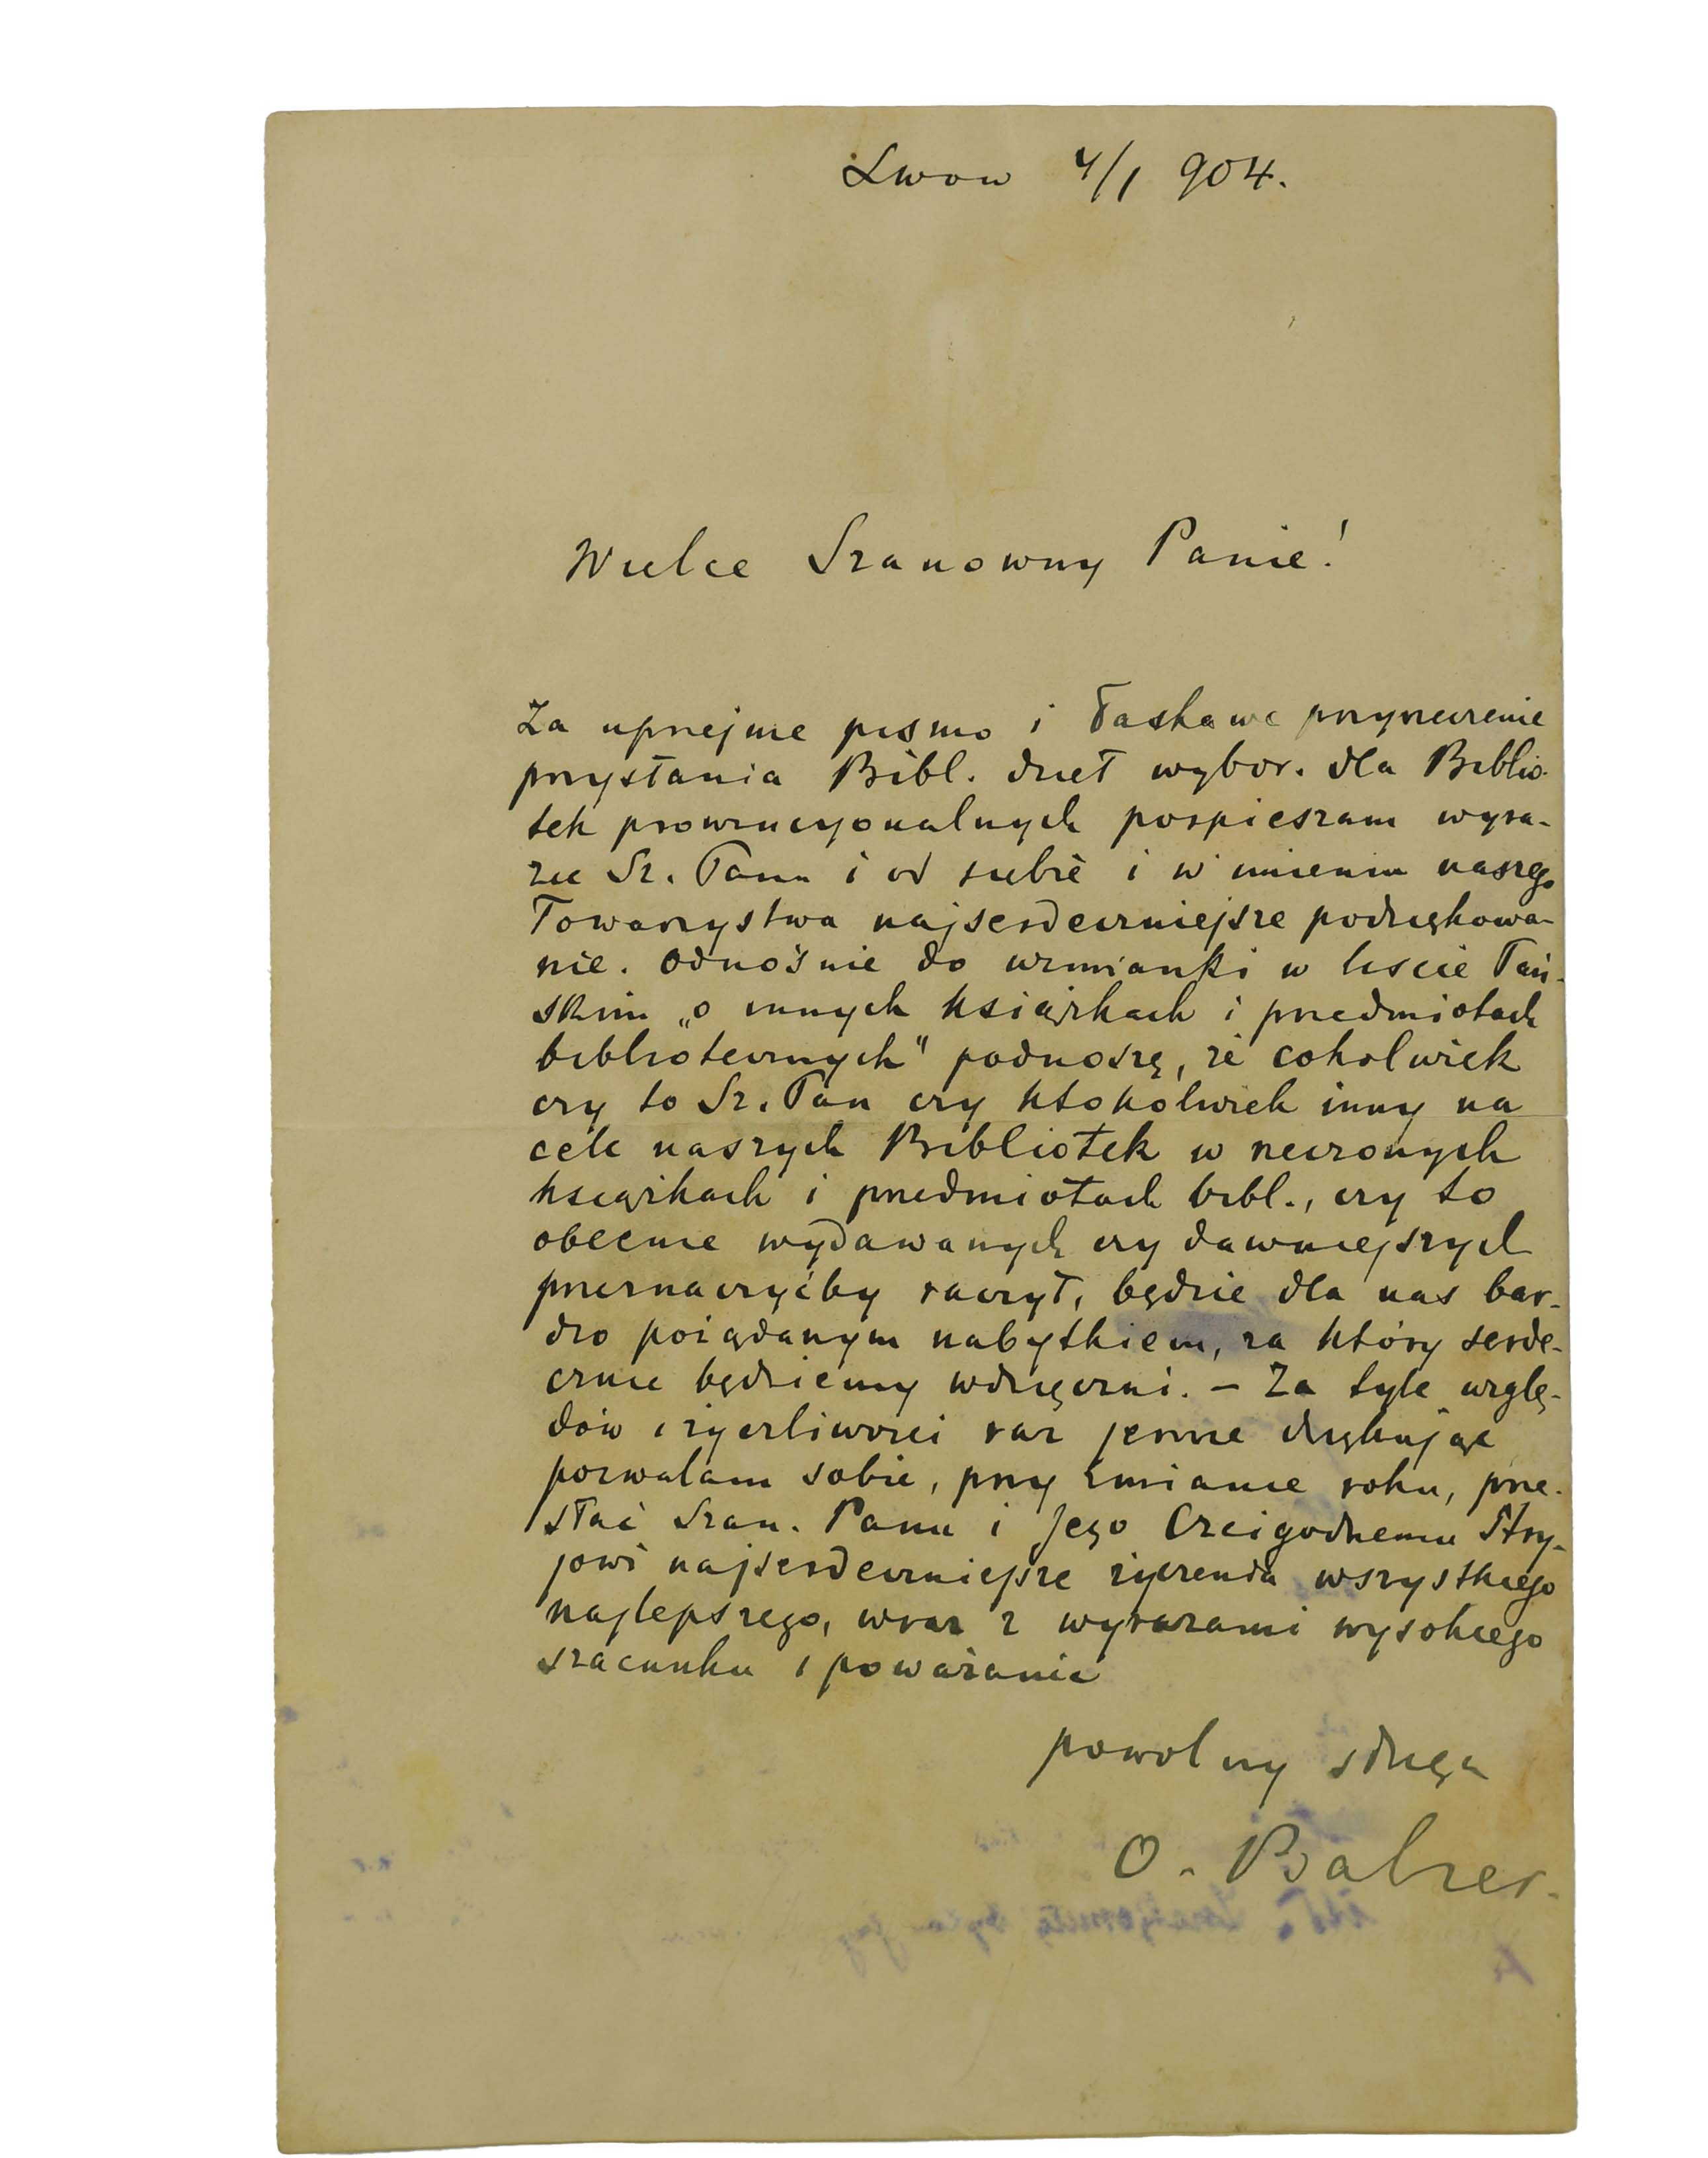 Lwow 4/1 904.
Wielce Szanowny Panie!
Za uprzejme pismo i łaskawe przyrzeczenie
przysłania Bibl. dzieł wybor. dla Biblio-
tek prowincyonalnych pospieszam wyra-
zić Sz. Panu i od siebie i w imieniu naszego
Towarzystwa najserdeczniejsze podziękowa-
nie. Odnośnie do wzmianki w liście Pań-
skim „o innych książkach i przedmiotach
bibliotecznych" podnoszę, że cokolwiek
czy to Sz. Pan czy ktokolwiek inny na
cele naszych Bibliotek w rzeczonych
książkach i przedmiotach bibl., czy to
obecnie wydawanych czy dawniejszych
przeznaczyćby raczył, będzie dla nas bar-
dzo pożądanym nabytkiem, za który serde-
cznie będziemy wdzięczni. – Za tyle wzglę-
dów i życzliwości raz jeszcze dziękując
pozwalam sobie, przy zmianie roku, prze-
słać Szan. Panu i Jego Czcigodnemu Stry-
jowi najserdeczniejsze życzenia wszystkiego
najlepszego, wraz z wyrazami wysokiego
szacunku i poważania
powolny sługa
O. Balzer.